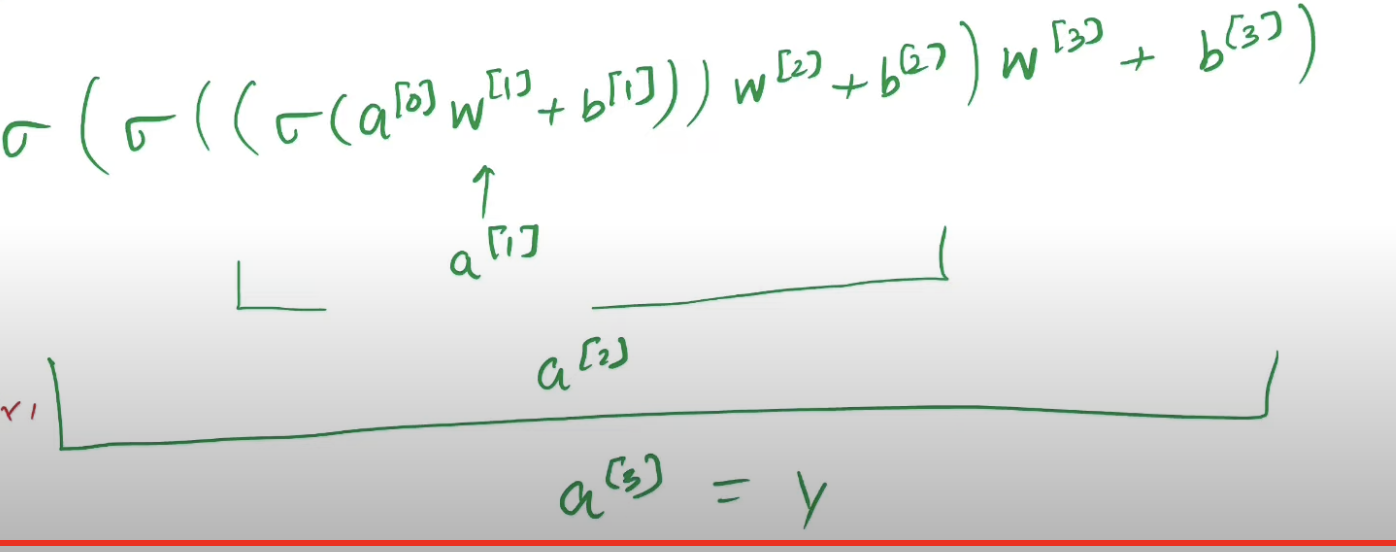 σ(σ((σ(a^[0] w^[1] + b^[1])) w^[2] + b^[2]) w^[3] + b^[3])
↑
a^[1]
a^[2]
a^[3] = y